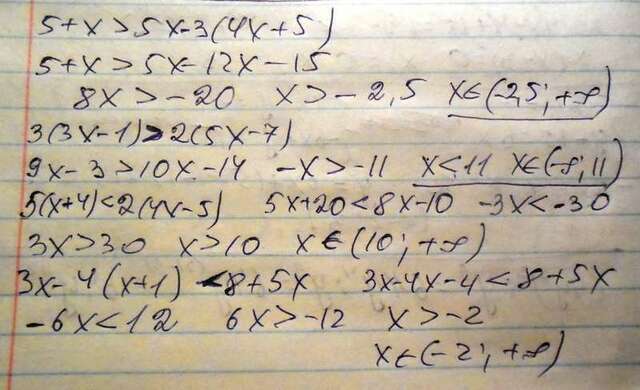 5+x>5x-3(4x+5)
5+x>5x-12x-15
8x>-20 x>-2,5 x∈(-2,5; +∞)
3(3x-1)>2(5x-7)
9x-3>10x-14 -x>-11 x<11 x∈(-∞; 11)
5(x+4)<2(4x-5) 5x+20<8x-10 -3x<-30
3x>30 x>10 x∈(10; +∞)
3x-4(x+1)<8+5x 3x-4x-4<8+5x
-6x<12 6x>-12 x>-2
x∈(-2; +∞)